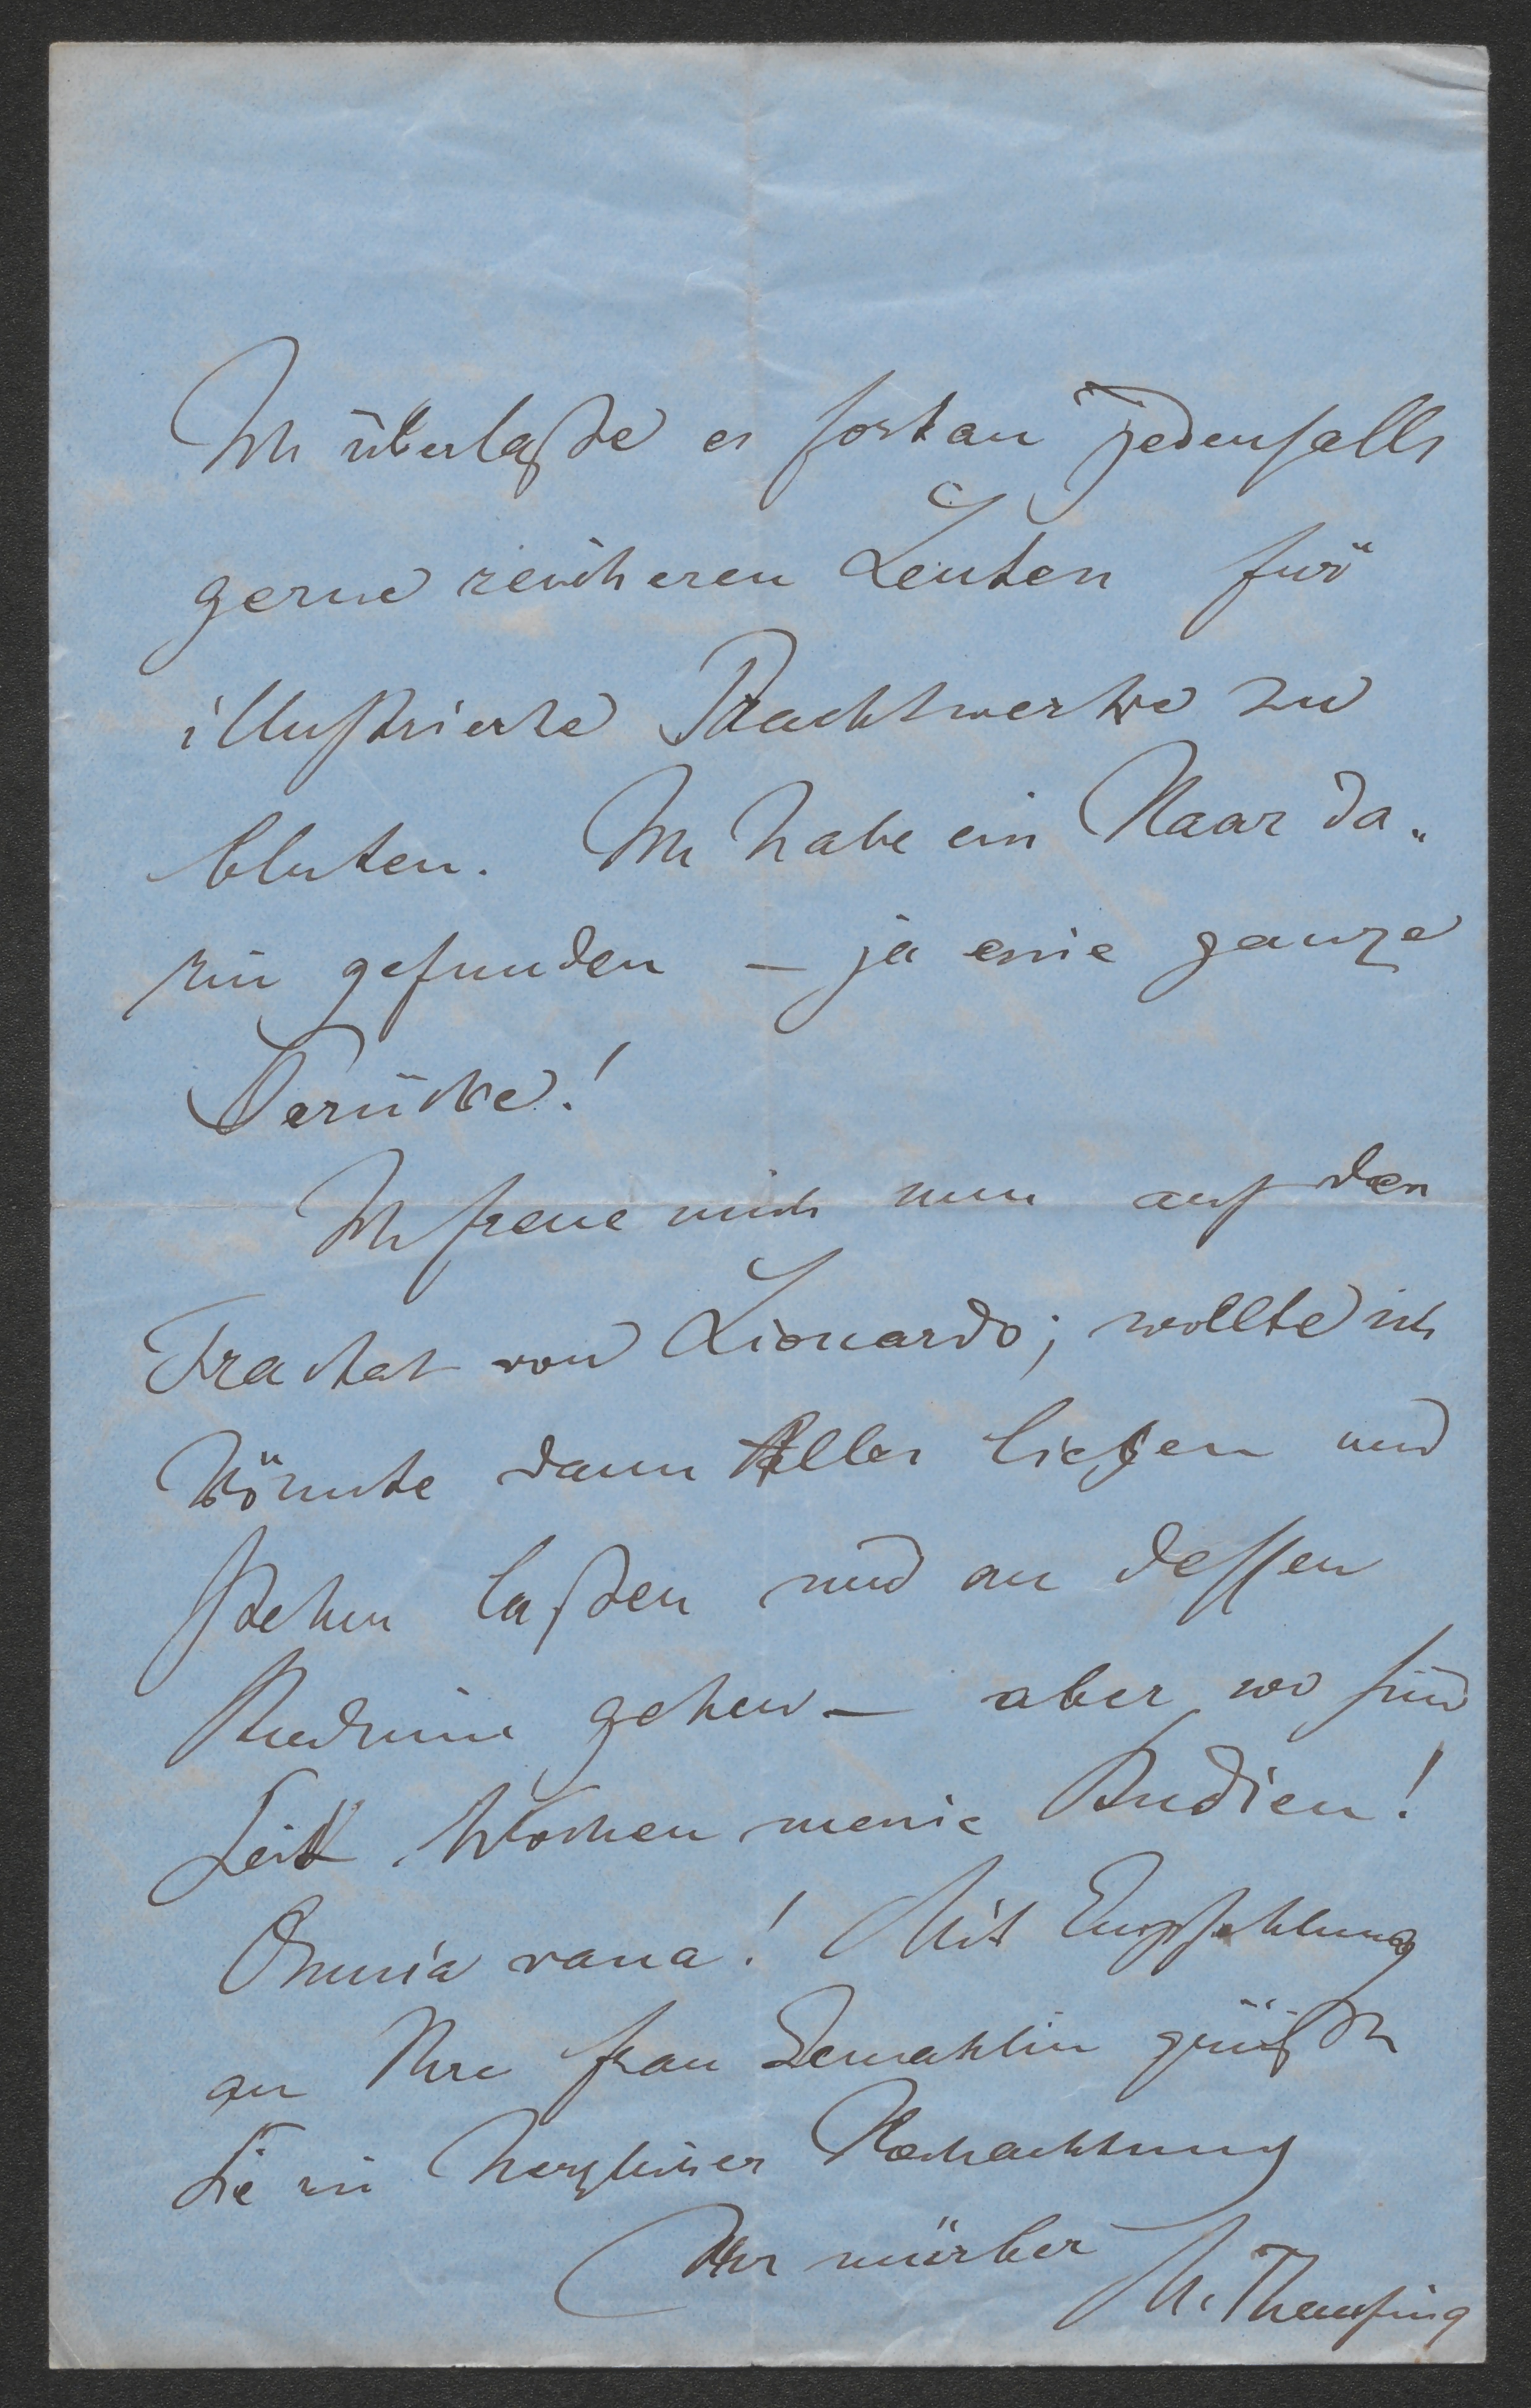 Ich überlaße es fortan jedenfalls
gerne reicheren Leuten für
illustrierte Prachtwerke zu
bluten. Ich habe ein Haar da„
rin gefunden – ja eine ganze
Perücke!
Ich freue mich nun auf den
Tractat von Lionardo; wollte ich
könnte dann Alles liegen und
stehen laßen und an dessen
Studium gehen – aber wo sind
Seit Wochen meine Studien!
Omnia vana! Mit Empfehlung
an Ihre Frau Gemahlin grüßt
Sie in herzlicher Hochachtung
Ihr mürber
M. Thausing